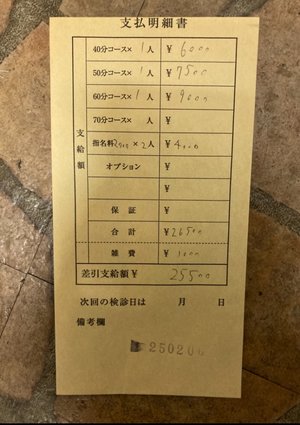 支払明細書
支給額
40分コース× 1 人 ¥ 6000
50分コース× 1 人 ¥ 7500
60分コース× 1 人 ¥ 9000
70分コース× 人 ¥
指名料2000 × 2人 ¥ 4000
オプション ¥
¥
保証 ¥
合計 ¥ 26500
雑費 ¥ 1000
差引支給額¥ 25500
次回の検診日は 月 日
備考欄